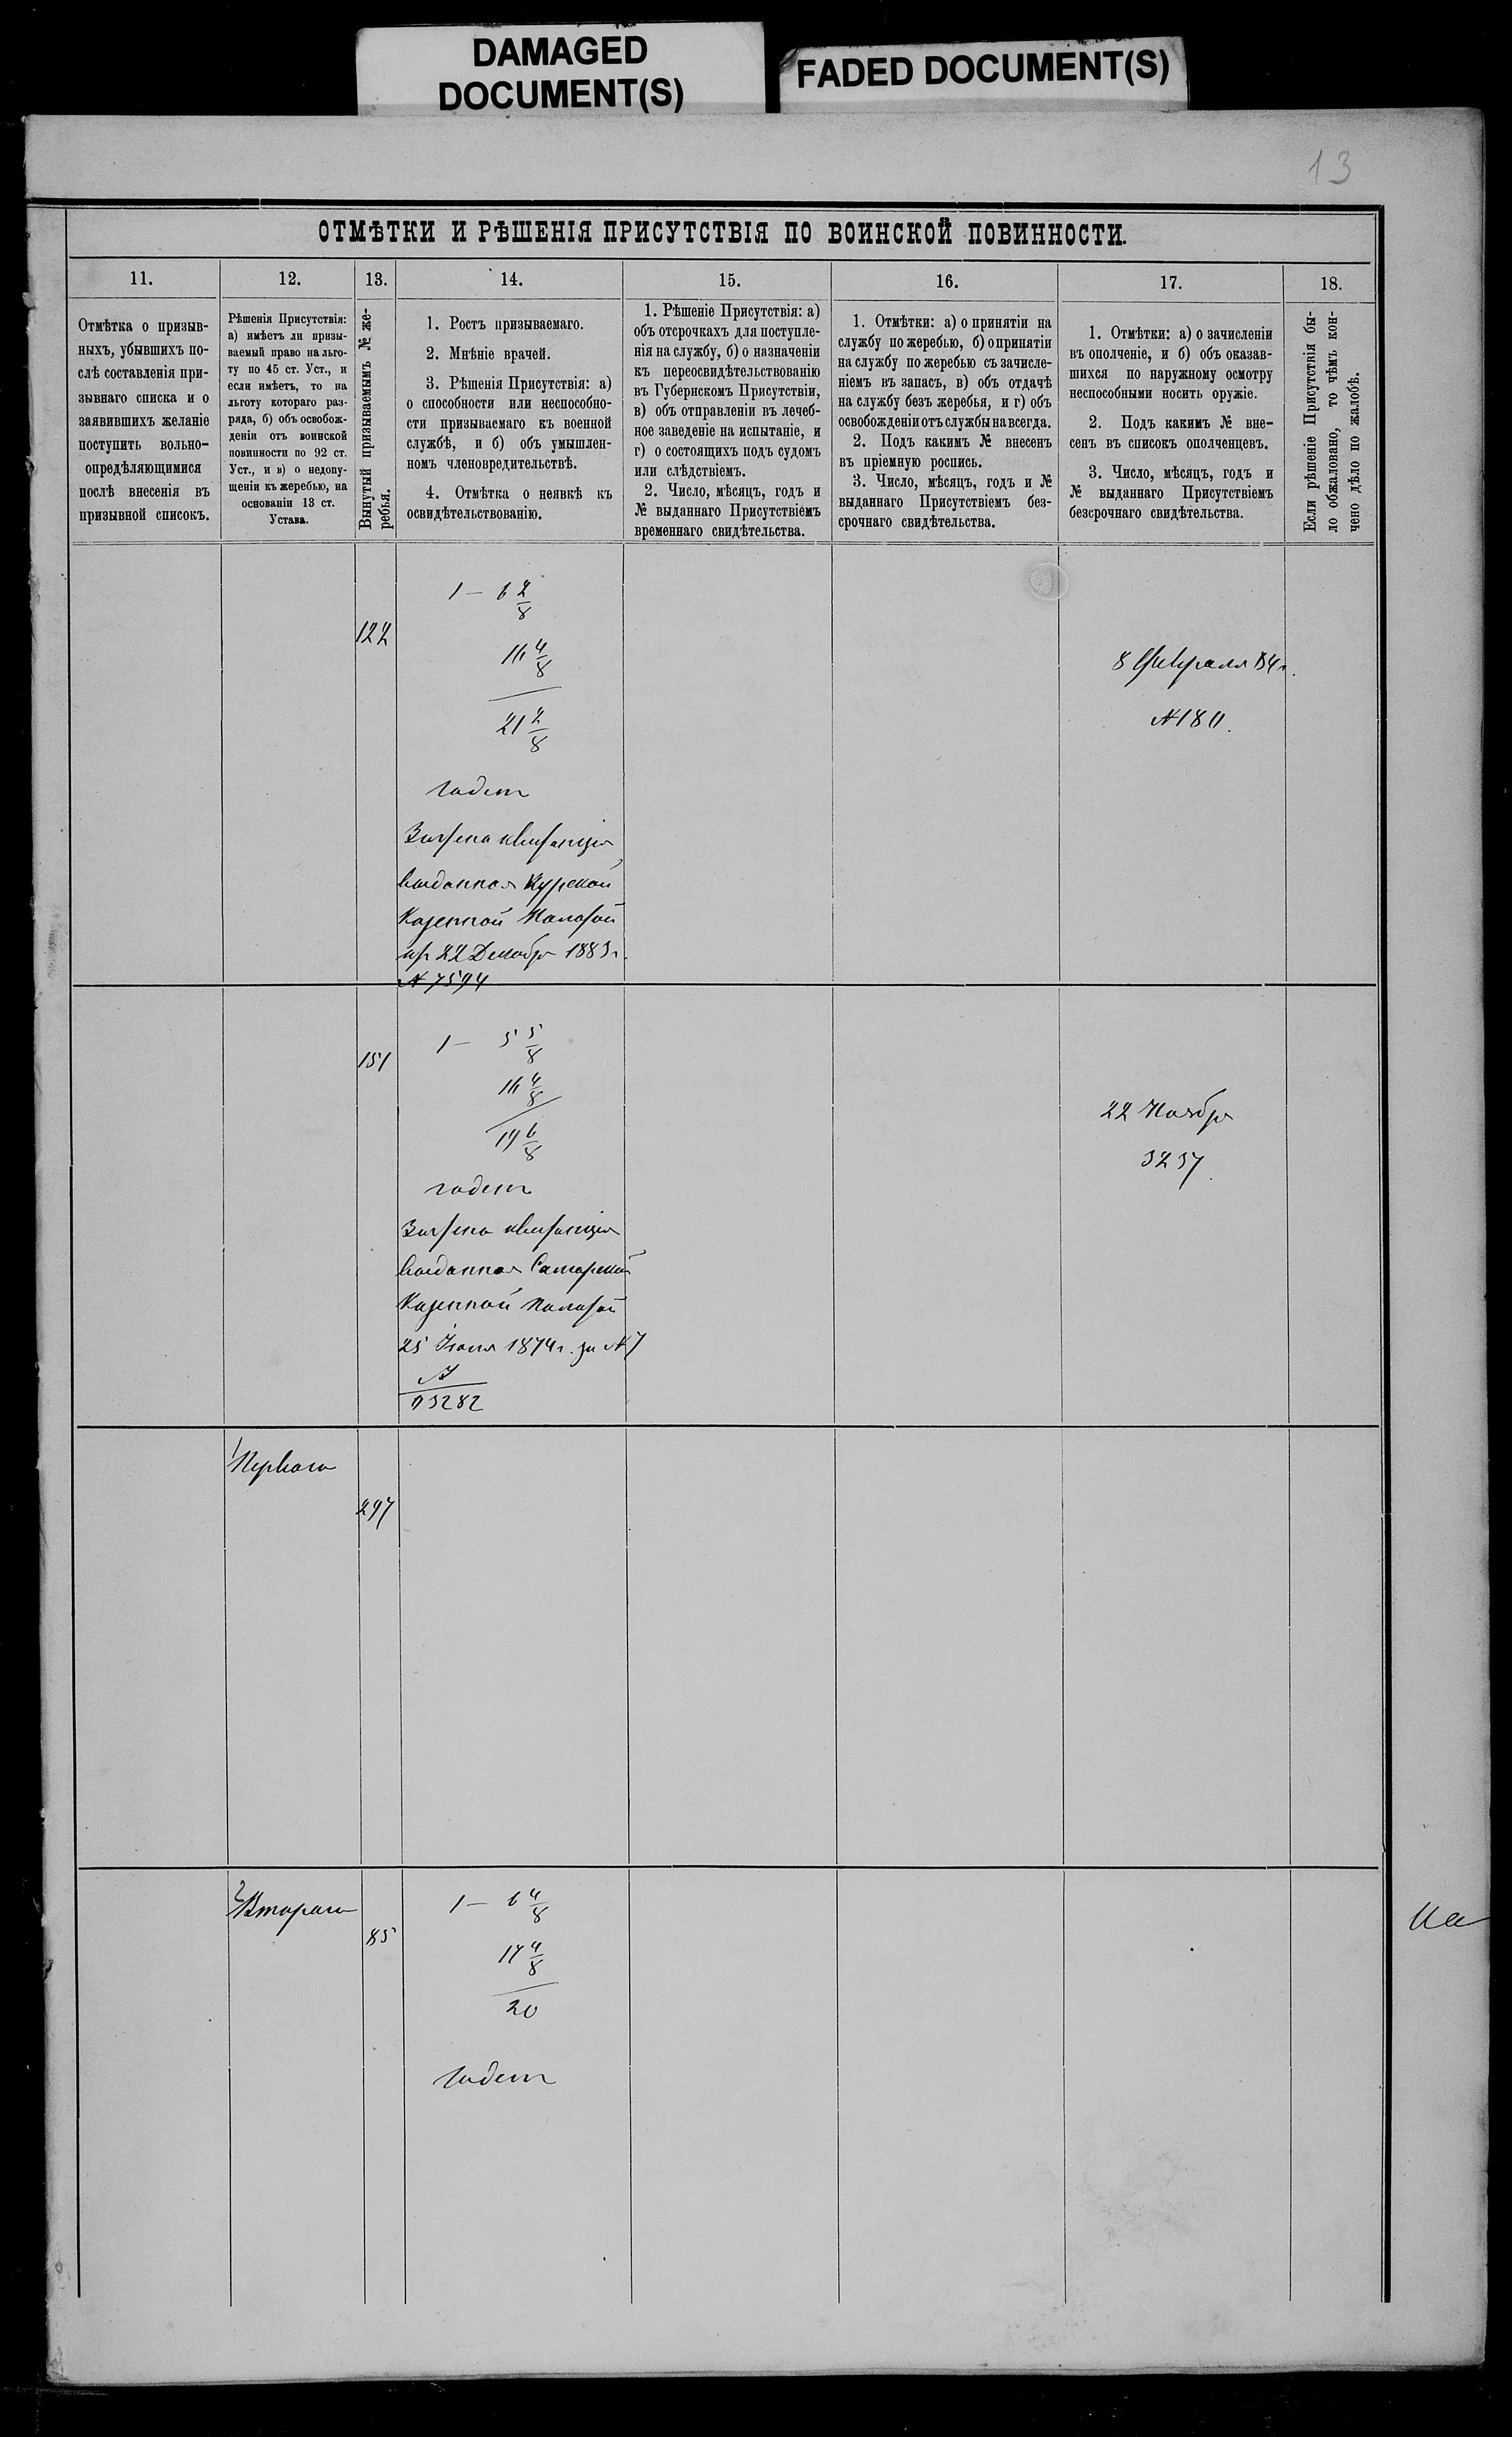 DAMAGED
DOCUMENT(S)
FADED DOCUMENT(S)
13
ОТМѢТКИ И РѢШЕНІЯ ПРИСУТСТВІЯ ПО ВОИНСКОЙ ПОВИННОСТИ.
11.
Отмѣтка о призыв-
ныхъ, убывшихъ по-
слѣ составленія при-
зывнаго списка и о
заявившихъ желаніе
поступить вольно-
опредѣляющимися
послѣ внесенія въ
призывной списокъ.
12.
Рѣшенія Присутствія:
а) имѣетъ ли призы-
ваемый право на льго-
ту по 45 ст. Уст., и
если имѣетъ, то на
льготу котораго раз-
ряда, б) объ освобож-
деніи отъ воинской
повинности по 92 ст.
Уст., и в) о недопу-
щеніи къ жеребью, на
основаніи 13 ст.
Устава.
13.
Вынутый призываемымъ № же-
ребья.
14.
1. Ростъ призываемаго.
2. Мнѣніе врачей.
3. Рѣшенія Присутствія: а)
о способности или неспособно-
сти призываемаго къ военной
службѣ, и б) объ умышлен-
номъ членовредительствѣ.
4. Отмѣтка о неявкѣ къ
освидѣтельствованію.
15.
1. Рѣшеніе Присутствія: а)
объ отсрочкахъ для поступле-
нія на службу, б) о назначеніи
къ переосвидѣтельствованію
въ Губернскомъ Присутствіи,
в) объ отправленіи въ лечеб-
ное заведеніе на испытаніе, и
г) о состоящихъ подъ судомъ
или слѣдствіемъ.
2. Число, мѣсяцъ, годъ и
№ выданнаго Присутствіемъ
временнаго свидѣтельства.
16.
1. Отмѣтки: а) о принятіи на
службу по жеребью, б) о принятіи
на службу по жеребью съ зачисле-
ніемъ въ запасъ, в) объ отдачѣ
на службу безъ жеребья, и г) объ
освобожденіи отъ службы навсегда.
2. Подъ какимъ № внесенъ
въ пріемную роспись.
3. Число, мѣсяцъ, годъ и №
выданнаго Присутствіемъ без-
срочнаго свидѣтельства.
17.
1. Отмѣтки: а) о зачисленіи
въ ополченіе, и б) объ оказав-
шихся по наружному осмотру
неспособными носить оружіе.
2. Подъ какимъ № вне-
сенъ въ списокъ ополченцевъ.
3. Число, мѣсяцъ, годъ и
№ выданнаго Присутствіемъ
безсрочнаго свидѣтельства.
18.
Если рѣшеніе Присутствія бы-
ло обжаловано, то чѣмъ кон-
чено дѣло по жалобѣ.
122
1 — 6 2/8
16 4/8
21 2/8
годенъ
Зачтена квитанція
выданная Курской
Казенной Палатой
22 Декабря 1883 г.
№ 7594
8 Февраля 84 г.
№ 180.
151
1 — 5 5/8
16 4/8
19 6/8
годенъ
Зачтена квитанція
выданная Самарской
Казенной Палатой
25 Іюня 1874 г. за № 7
03282
22 Ноября
3237.
Перваго
297
Втораго
85
1 — 6 4/8
17 4/8
20
годенъ